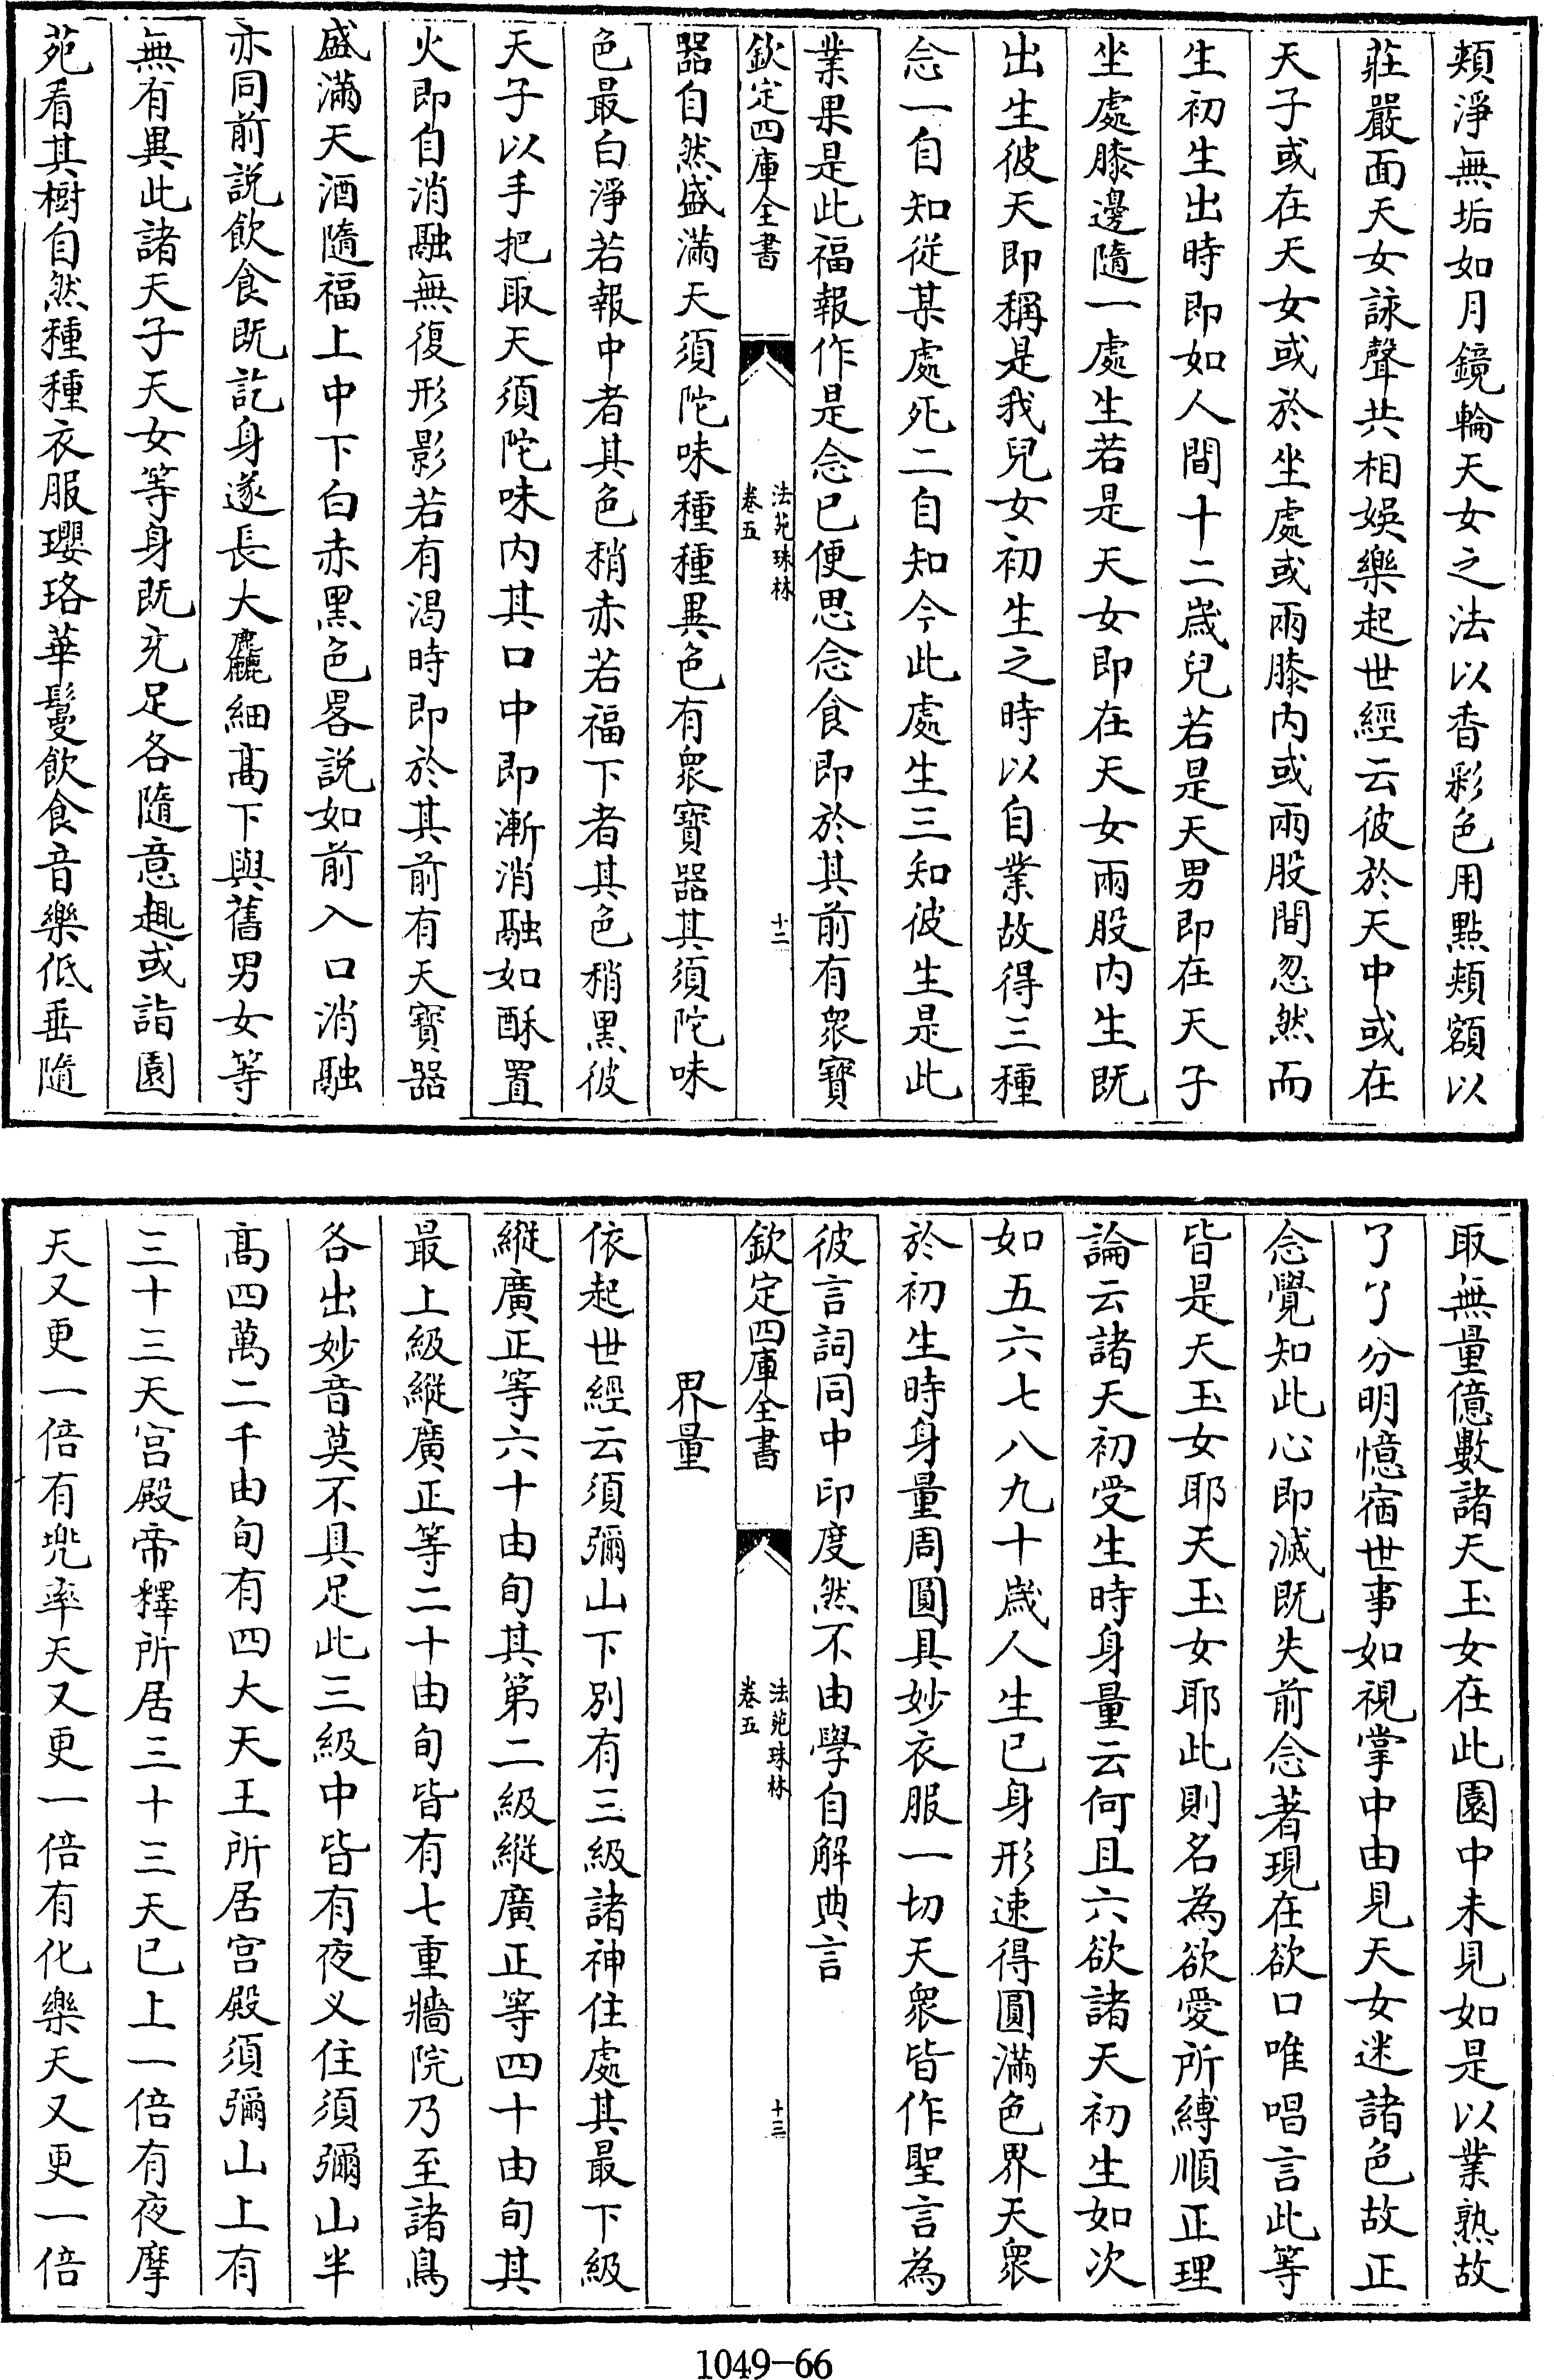 頰淨無垢如月鏡輪天女之法以香彩色用點頰額以
莊嚴面天女詠聲共相娛樂起世經云彼於天中或在
天子或在天女或於坐處或兩膝内或兩股間忽然而
生初生出時即如人間十二歲兒若是天男即在天子
坐處膝邊隨一處生若是天女即在天女兩股内生既
出生彼天即稱是我兒女初生之時以自業故得三種
念一自知從某處死二自知今此處生三知彼生是此
業果是此福報作是念已便思念食即於其前有衆寳
欽定四庫全書
法苑珠林
卷五
十二
器自然盛滿天須陀味種種異色有衆寳器其須陀味
色最白淨若報中者其色稍赤若福下者其色稍黑彼
天子以手把取天須陀味内其口中即漸消融如酥置
火即自消融無復形影若有渇時即於其前有天寳器
盛滿天酒隨福上中下白赤黑色畧説如前入口消融
亦同前説飲食既訖身遂長大麤細髙下與舊男女等
無有異此諸天子天女等身既充足各隨意趣或詣園
苑看其樹自然種種衣服瓔珞華鬘飲食音樂低垂隨
取無量億數諸天玉女在此園中未見如是以業熟故
了了分明憶宿世事如視掌中由見天女迷諸色故正
念覺知此心即滅既失前念著現在欲口唯唱言此等
皆是天玉女耶天玉女耶此則名為欲愛所縛順正理
論云諸天初受生時身量云何且六欲諸天初生如次
如五六七八九十歲人生已身形速得圓滿色界天衆
於初生時身量周圓具妙衣服一切天衆皆作聖言為
彼言詞同中印度然不由學自解典言
欽定四庫全書
法苑珠林
卷五
十三
界量
依起世經云須彌山下别有三級諸神住處其最下級
縱廣正等六十由旬其第二級縱廣正等四十由旬其
最上級縱廣正等二十由旬皆有七重牆院乃至諸鳥
各出妙音莫不具足此三級中皆有夜义住須彌山半
髙四萬二千由旬有四大天王所居宫殿須彌山上有
三十三天宫殿帝釋所居三十三天已上一倍有夜摩
天又更一倍有兠率天又更一倍有化樂天又更一倍
1049-66